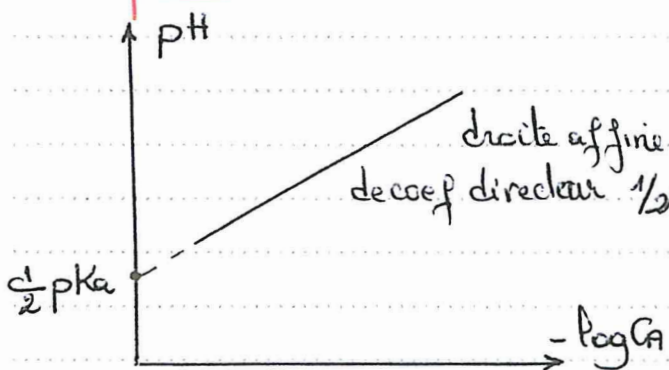 pH
droite affine
de coef directeur 1/2
1/2 pKa
- log CA